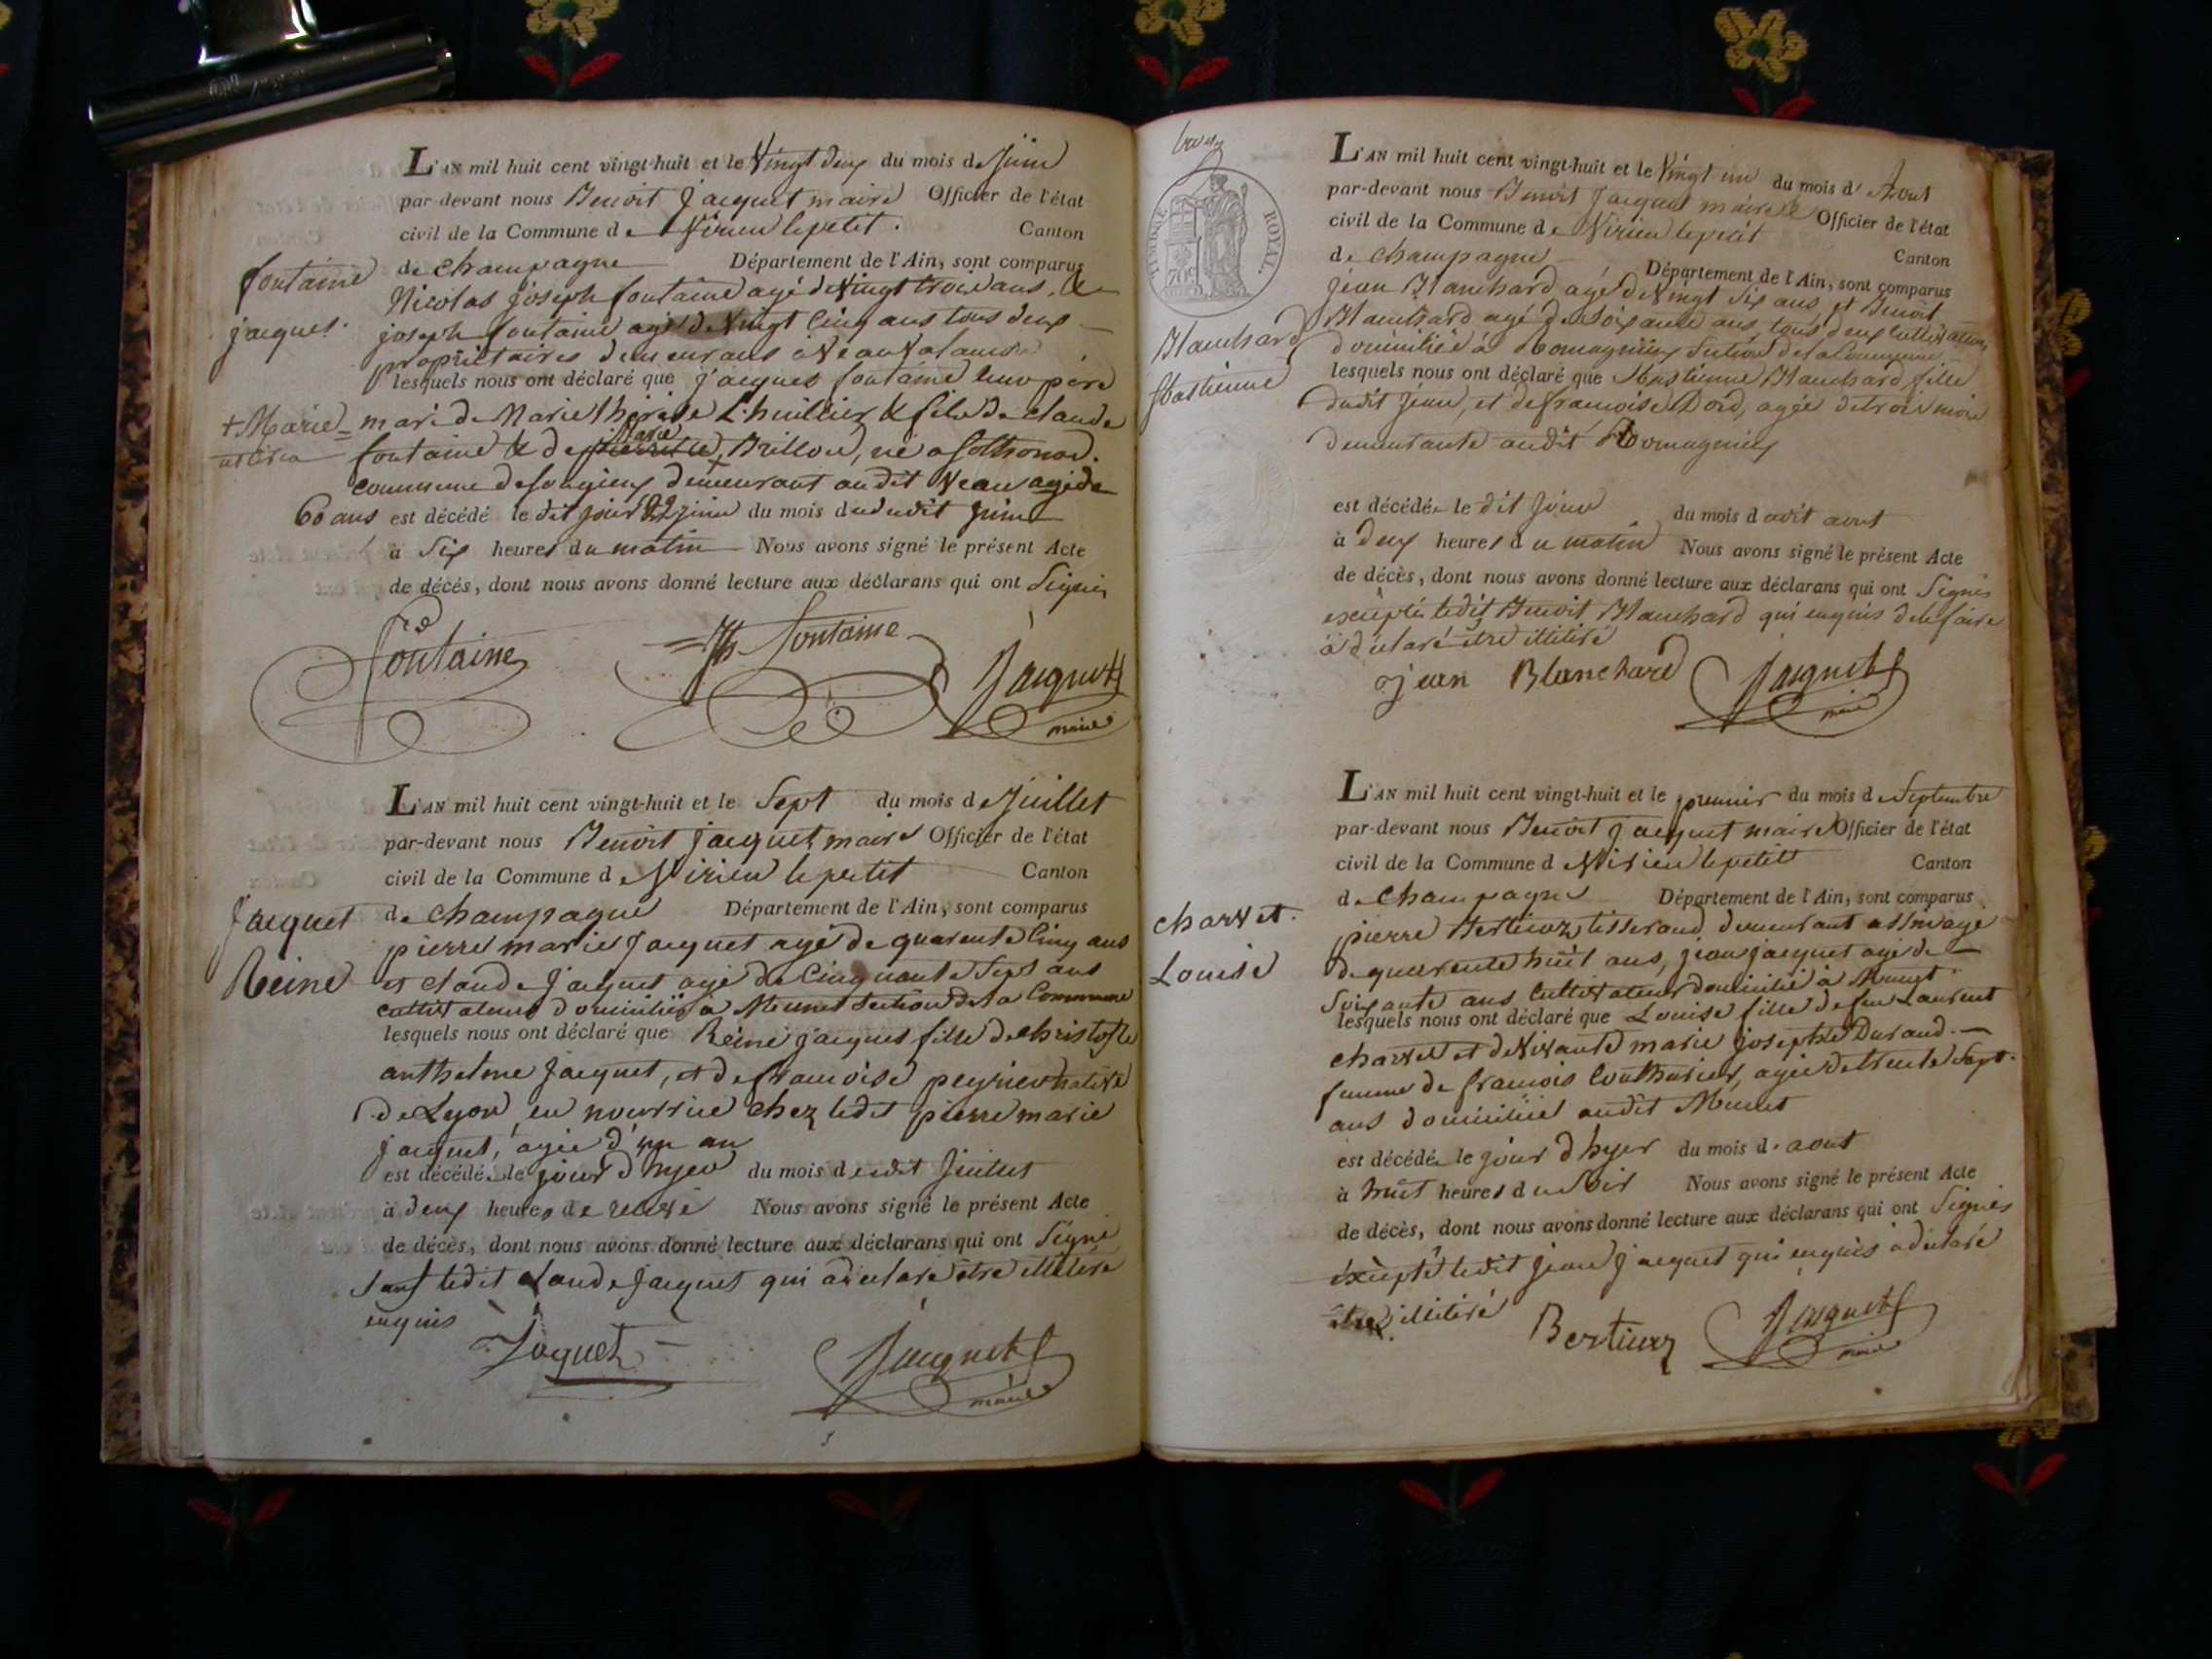 L'AN mil huit cent vingt-huit et le Vingt deux du mois de Juin
par-devant nous Benoit Jacquet maire Officier de l'état
civil de la Commune de Virieu le petit. Canton
de Champagne Département de l'Ain, sont comparus
fontaine
jacques.
Nicolas joseph fontaine agé de Vingt trois ans, &
joseph fontaine agé de Vingt Cinq ans tous deux
propriétaires demeurans à
lesquels nous ont déclaré que jacques fontaine leur père
mari de Marie thérèse L'huillier & fils de claude
+ Marie
Marie
fontaine & de Brillon, né a Sothonod.
commune de songieu demeurant audit Veau agé de
60 ans est décédé le dit jour 22 juin du mois dududit Juin
à Six heures du matin Nous avons signé le présent Acte
de décès, dont nous avons donné lecture aux déclarans qui ont Signés
fontaine
Jh fontaine
Jacquet
maire
L'AN mil huit cent vingt-huit et le Sept du mois de Juillet
par-devant nous Benoit jacquet maire Officier de l'état
civil de la Commune de Virieu le petit Canton
de Champagne Département de l'Ain, sont comparus
Jacquet
Reine
pierre marie Jacquet agé de quarente Cinq ans
et claude Jacquet agé de Cinquante Sept ans
cultivateurs domiciliés à Munet section de la Commune
lesquels nous ont déclaré que Reine jacquet fille de christofle
anthelme Jacquet, et de francoise peyrieu native
de Lyon, en nourrice chez ledit pierre marie
jacquet, agée d'un an
est décédée le jour d'hyer du mois dudit Juillet
à deux heures de relevé Nous avons signé le présent Acte
de décès, dont nous avons donné lecture aux déclarans qui ont Signé
Sauf ledit claude Jacquet qui a déclaré être illitéré
enquis
Jaquet
Jacquet
maire
TIMBRE ROYAL.
70c
L'AN mil huit cent vingt-huit et le Vingt un du mois d'Aout
par-devant nous Benoit Jacquet maire Officier de l'état
civil de la Commune de Virieu le petit Canton
de Champagne Département de l'Ain, sont comparus
Blanchard
jean Blanchard agé de Vingt Six ans, et Benoit
Blanchard agé de soixante ans, tous deux cultivateurs
domiciliés à Romagnieu section de la Commune
lesquels nous ont déclaré que Blanchard fille
dudit jean, et de francoise Dord, agée de trois mois
demeurante audit Romagnieu
est décédée le dit jour du mois dudit aout
à deux heures du matin Nous avons signé le présent Acte
de décès, dont nous avons donné lecture aux déclarans qui ont Signés
excepté ledit Benoit Blanchard qui enquis de le faire
à déclaré être illitéré
jean Blanchard
Jacquet
maire
L'AN mil huit cent vingt-huit et le premier du mois de Septembre
par-devant nous Benoit jacquet maire Officier de l'état
civil de la Commune de Virieu le petit Canton
de Champagne Département de l'Ain, sont comparus
charvet.
Louise
pierre Bertieux tisserand demeurant agé
de quarente huit ans, jean jacquet agé de
Soixante ans Cultivateur domicilié à Munet
lesquels nous ont déclaré que Louise fille de feu Laurent
charvet et de Vivante marie josephte Durand.
femme de francois, agée de trente Sept.
ans domiciliée audit Munet
est décédée le jour d'hyer du mois d'aout
à huit heures du Soir Nous avons signé le présent Acte
de décès, dont nous avons donné lecture aux déclarans qui ont Signés
éxcepté ledit jean jacquet qui enquis à déclaré
être illitéré
Bertieux
Jacquet
maire